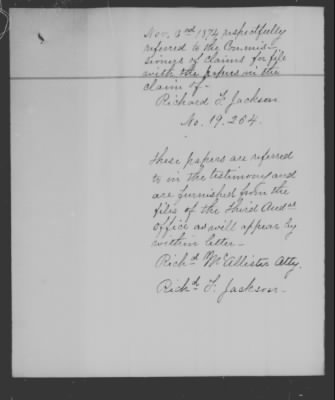 Nov. 3rd 1874 respectfully
referred to the Commis-
sioners of Claims for file
with the papers in the
claim of -
Richard F. Jackson
No. 19.264.
These papers are referred
to in the testimony and
are furnished from the
files of the Third Auds
Office as will appear by
within letter -
Richd McAllister Atty.
Richd F. Jackson -